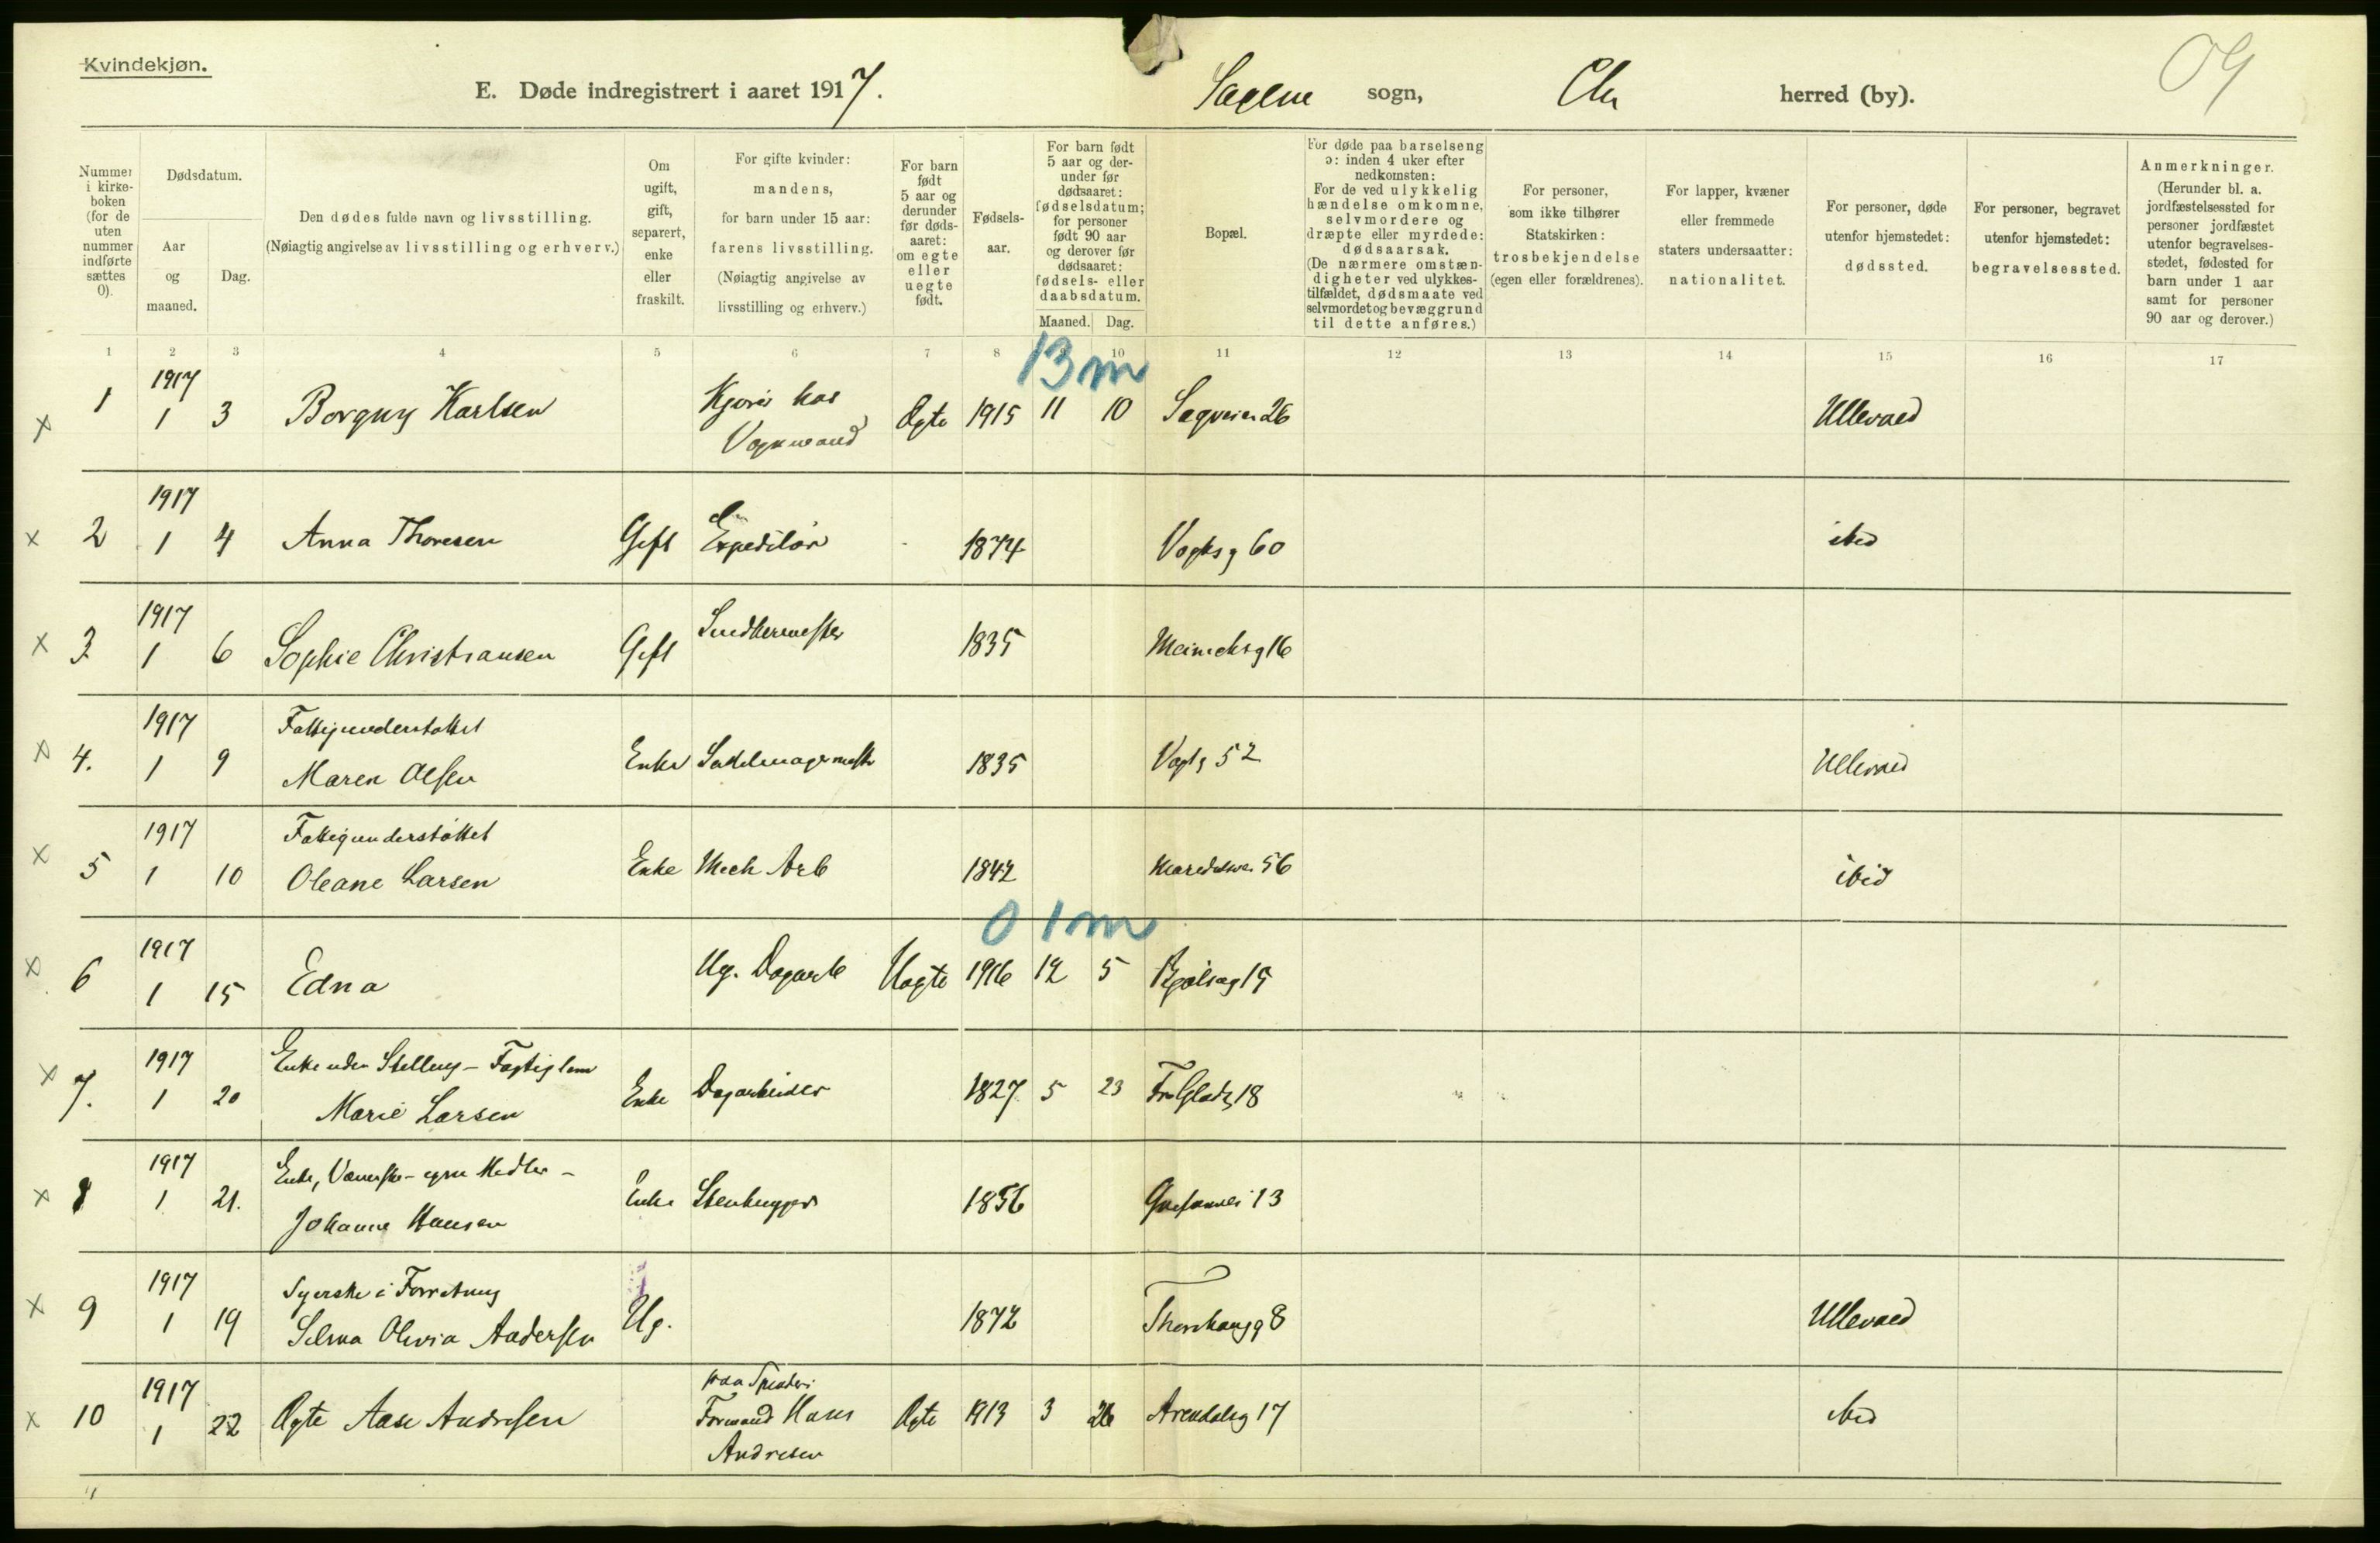 Kvindekjøn.
E. Døde indregistrert i aaret 1917.
Sagene sogn, Chr herred (by).
09
Nummer i kirke- boken (for de uten nummer indførte sættes 0).
Dødsdatum.
Aar og maaned.
Dag.
Den dødes fulde navn og livsstilling.
(Nøiagtig angivelse av livsstilling og erhverv.)
Om ugift, gift, separert, enke eller fraskilt.
For gifte kvinder: mandens, for barn under 15 aar: farens livsstilling. (Nøiagtig angivelse av livsstilling og erhverv.)
For barn født 5 aar og derunder før døds- aaret: om egte eller uegte født.
Fødsels- aar.
For barn født 5 aar og der- under før dødsaaret: fødselsdatum; for personer født 90 aar og derover før dødsaaret: fødsels- eller daabsdatum.
Maaned. Dag.
Bopæl.
For døde paa barselseng ɔ: inden 4 uker efter nedkomsten: For de ved ulykkelig hændelse omkomne, selvmordere og dræpte eller myrdede: dødsaarsak. (De nærmere omstæn- digheter ved ulykkes- tilfældet, dødsmaate ved selvmordet og bevæggrund til dette anføres.)
For personer, som ikke tilhører Statskirken: trosbekjendelse (egen eller forældrenes).
For lapper, kvæner eller fremmede staters undersaatter: nationalitet.
For personer, døde utenfor hjemstedet: dødssted.
For personer, begravet utenfor hjemstedet: begravelsessted.
Anmerkninger. (Herunder bl. a. jordfæstelsessted for personer jordfæstet utenfor begravelses- stedet, fødested for barn under 1 aar samt for personer 90 aar og derover.)
1 2 3 4 5 6 7 8 9 10 11 12 13 14 15 16 17
13 m
x 1 1917 1 3 Borgny Karlsen Kjører hos Vognmand Ægte 1915 11 10 Sagveien 26 Ullevaal
x 2 1917 1 4 Anna Thoresen Gift Expeditør 1874 Vogtsg 60 ibid
x 3 1917 1 6 Sophie Christiansen Gift Snedkermester 1835 16
x 4. 1917 1 9 Fattigunderstøttet
Maren Olsen Enke Sadelmagermestr 1835 Vogtg 52 Ullevaal
x 5 1917 1 10 Fattigunderstøttet
Oleane Larsen Enke Mech Arb 1842 Maridalsvei 56 ibid
0 1 m
x 6 1917 1 15 Edna Ug. Dagarb Uægte 1916 12 5 Bjølseng 15
x 7. 1917 1 20 Enke uden Stelling - Fattiglem
Marie Larsen Enke Dagarbeider 1827 5 23 Fr Gladsg 18
x 8 1917 1 21. Enke, Væverske - egne Midler -
Johanne Hansen Enke Stenhugger 1856 Grefsenvei 13
x 9 1917 1 19 Syerske i Forretning
Selma Olivia Andersen Ug. 1872 Thorshaugg 8 Ullevaal
x 10 1917 1 22 Ægte Aase Andresen paa Spinderi
Formand Hans
Andresen Ægte 1913 3 26 Arendalsg 17 ibid
"